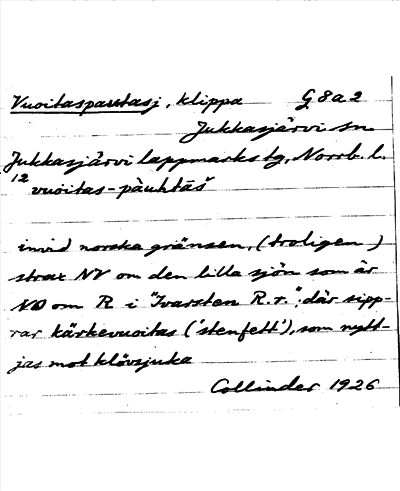 Vuoitaspautasj, klippa G 8 a 2
Jukkasjärvi sn
Jukkasjärvi lappmarks tg, Norrb. l.
12 vuoitas-pàuhtāš
invid norska gränsen, (troligen)
strax NV om den lilla sjön som är
NO om R i "Ivarsten R.r."; där sipp-
rar kärkevuoitas ('stenfett'), som nytt-
jas mot klövsjuka
Collinder 1926